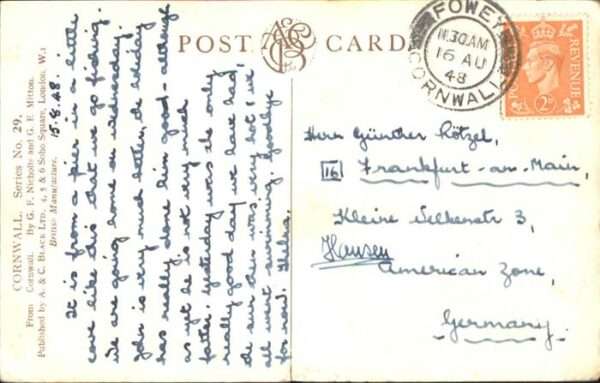 CORNWALL. Series No. 29.
From Cornwall. By G. F. Nicholls and G. E. Mitton.
Published by A. & C. BLACK LTD. 4, 5 & 6 Soho Square, London, W.1
British Manufacture.
15.8.48.
It is from a pier in a little
cove like dis that we go fishing.
We are going home on Wednesday.
John is very much better, de holiday
has really done him good - although
as yet he is not very much
fatter. Yesterday was the only
really good day we have had,
de sun des was very hot & we
all went swimming. Goodbye
for now. Thelma.
POST CARD
FOWEY
11.30AM
16 AU
48
CORNWALL
REVENUE
Herrn Günther Kötzel,
16 Frankfurt-am-Main,
Kleine Selkenstr 3,
Hausen
American Zone,
Germany.